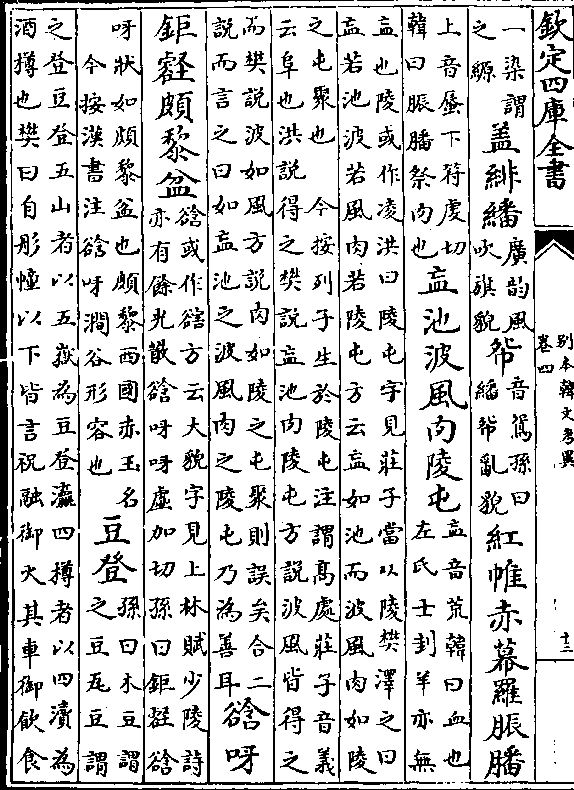 欽定四庫全書
別本韓文考異
卷四
十三
一染謂
之縓
盖緋繙
廣韵風
吹旗貌
㠾
音鴛孫曰
繙㠾亂貌
紅帷赤幕羅脤膰
上音蜃下符虔切
韓曰脤膰祭肉也
衁池波風肉陵屯
衁音荒韓曰血也
左氏士刲羊亦無
衁也陵或作凌洪曰陵屯字見莊子當以陵樊澤之曰
衁若池波若風肉若陵屯方云衁如池而波風肉如陵
之屯聚也　今按列子生於陵屯注謂髙處莊子音義
云阜也洪說得之樊說衁池肉陵屯方說波風皆得之
而樊說波如風方說肉如陵之屯聚則誤矣合二
說而言之曰如衁池之波風肉之陵屯乃為善耳
谽呀
鉅壑頗黎盆
谽或作䜍方云大貌字見上林賦少陵詩
亦有餘光散谽呀呀虛加切孫曰鉅壑谽
呀狀如頗黎盆也頗黎西國赤玉名
今按漢書注谽呀澗谷形容也
豆登
孫曰木豆謂
之豆瓦豆謂
之登豆登五山者以五嶽為豆登瀛四樽者以四瀆為
酒樽也樊曰自彤幢以下皆言祝融御火其車御飲食